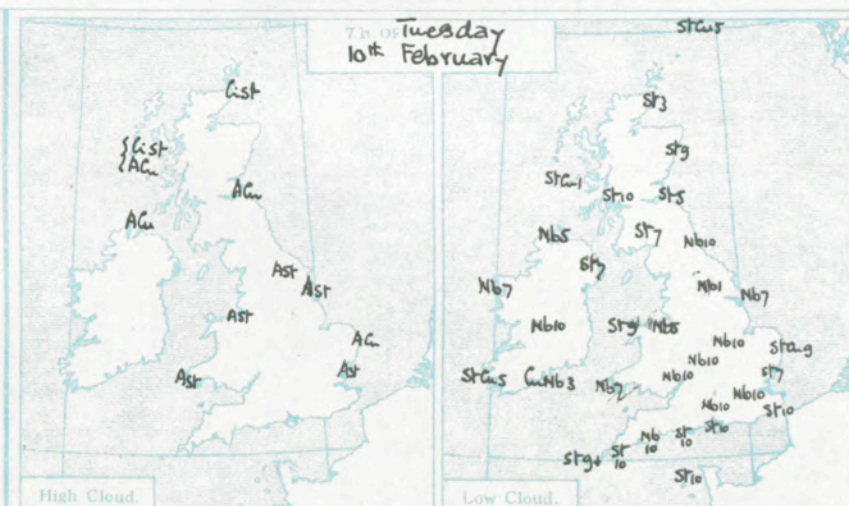 7 h. OF Tuesday
10th February
Cist
{Cist
{ACu
ACu
ACu
Ast
Ast
Ast
ACu
Ast
Ast
High Cloud.
StCu5
St3
St9
StCu1
St10
St5
Nb5
St7
Nb10
St7
Nb7
Nb1
Nb7
Nb10
St9
Nb8
Nb10
StCu9
Nb10
St7
StCu5
CuNb3
Nb7
Nb10
Nb10
Nb10
St10
St10
St10
Nb10
St10
St9+
St10
Low Cloud.